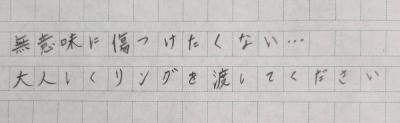 無意味に傷つけたくない…
大人しくリングを渡してください